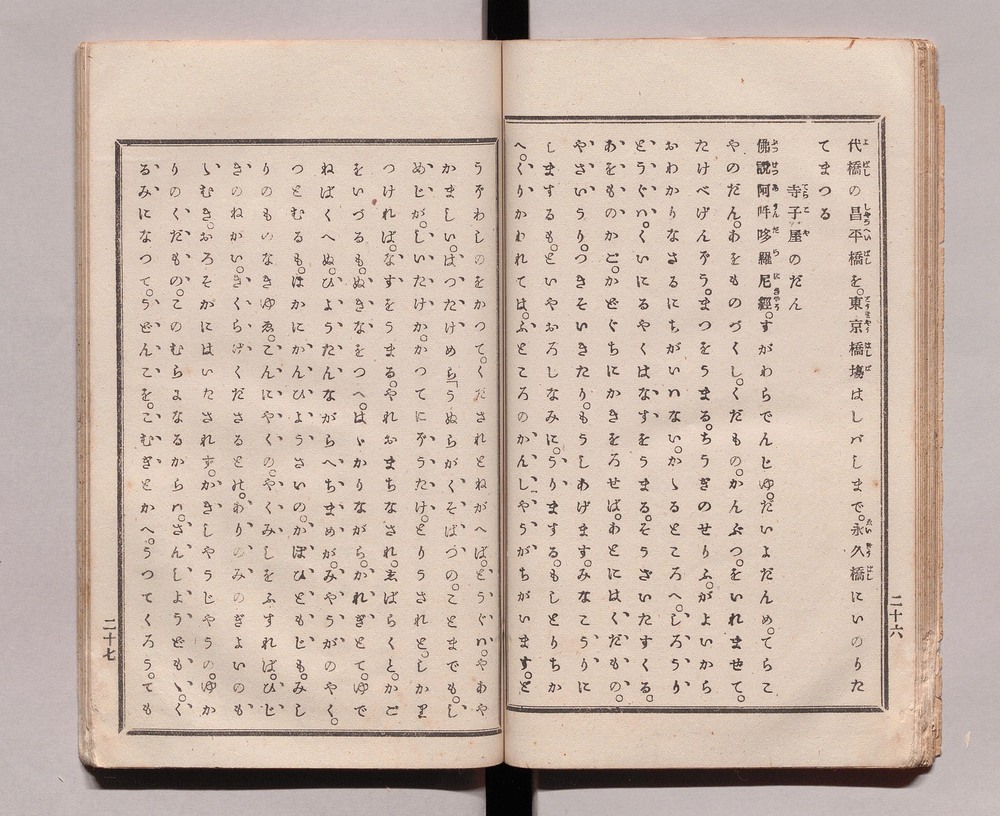 代橋の昌平橋を。東京橋塲はしバしまで。永久橋にいのりた
てまつる
寺子屋のだん
佛說阿吽哆羅尼經。すがわらでんじゆ。だいよだんめ。てらこ
やのだん。あをものづくし。くだもの。かんぶつ。をいれませて。
たけべげんぞう。まつをうまる。ちうぎのせりふ。がよいから
おわかりなさるにちがいいない。かゝるところへ。しろうり
とうぐハ。くいにるやくはなすをうまる。そうざいたすくる。
あをものかご。かどぐちにかきをろせば。あとにはくだもの。
やさいうり。つきそいきたり。もうしあげます。みなこうりに
しまするも。といやおろしなみに。うりまする。もしとりちか
へ。くりかわれては。ふところのかんしやうがちがいます。と
うぞわしのをかつて。くだされとねがへば。とうぐハ。やあや
かましい。はつたけめら「うぬらがくそばづの。ことまでも。し
めじが。しいたけか。かつてにぞうたけ。とりうされと。しかり
つければ。なすをうまる。やれおまちなされ。志ばらくと。かご
をいづるも。ぬきなをつへ。はゝかりながら。かれぎとて。ゆで
ねばくへぬ。ひようたんながらへちまめが。みやうがのやく。
つとむるも。ほかにかんひようさいの。かぼひともじも。みし
りのものなきゆゑ。こんにやくの。やくみしをふすれば。ひじ
きのねがい。きくらげくださるとの。わりのみのぎよいのも
いむき。おろそがにはいたされす。かきしやうじやうの。ゆか
りのくだもの。このむらよなるからハ。さんしようども、。く
るみになつて。うどんこを。こむぎとかへ。うつてくろう。ても
二十六
二十七